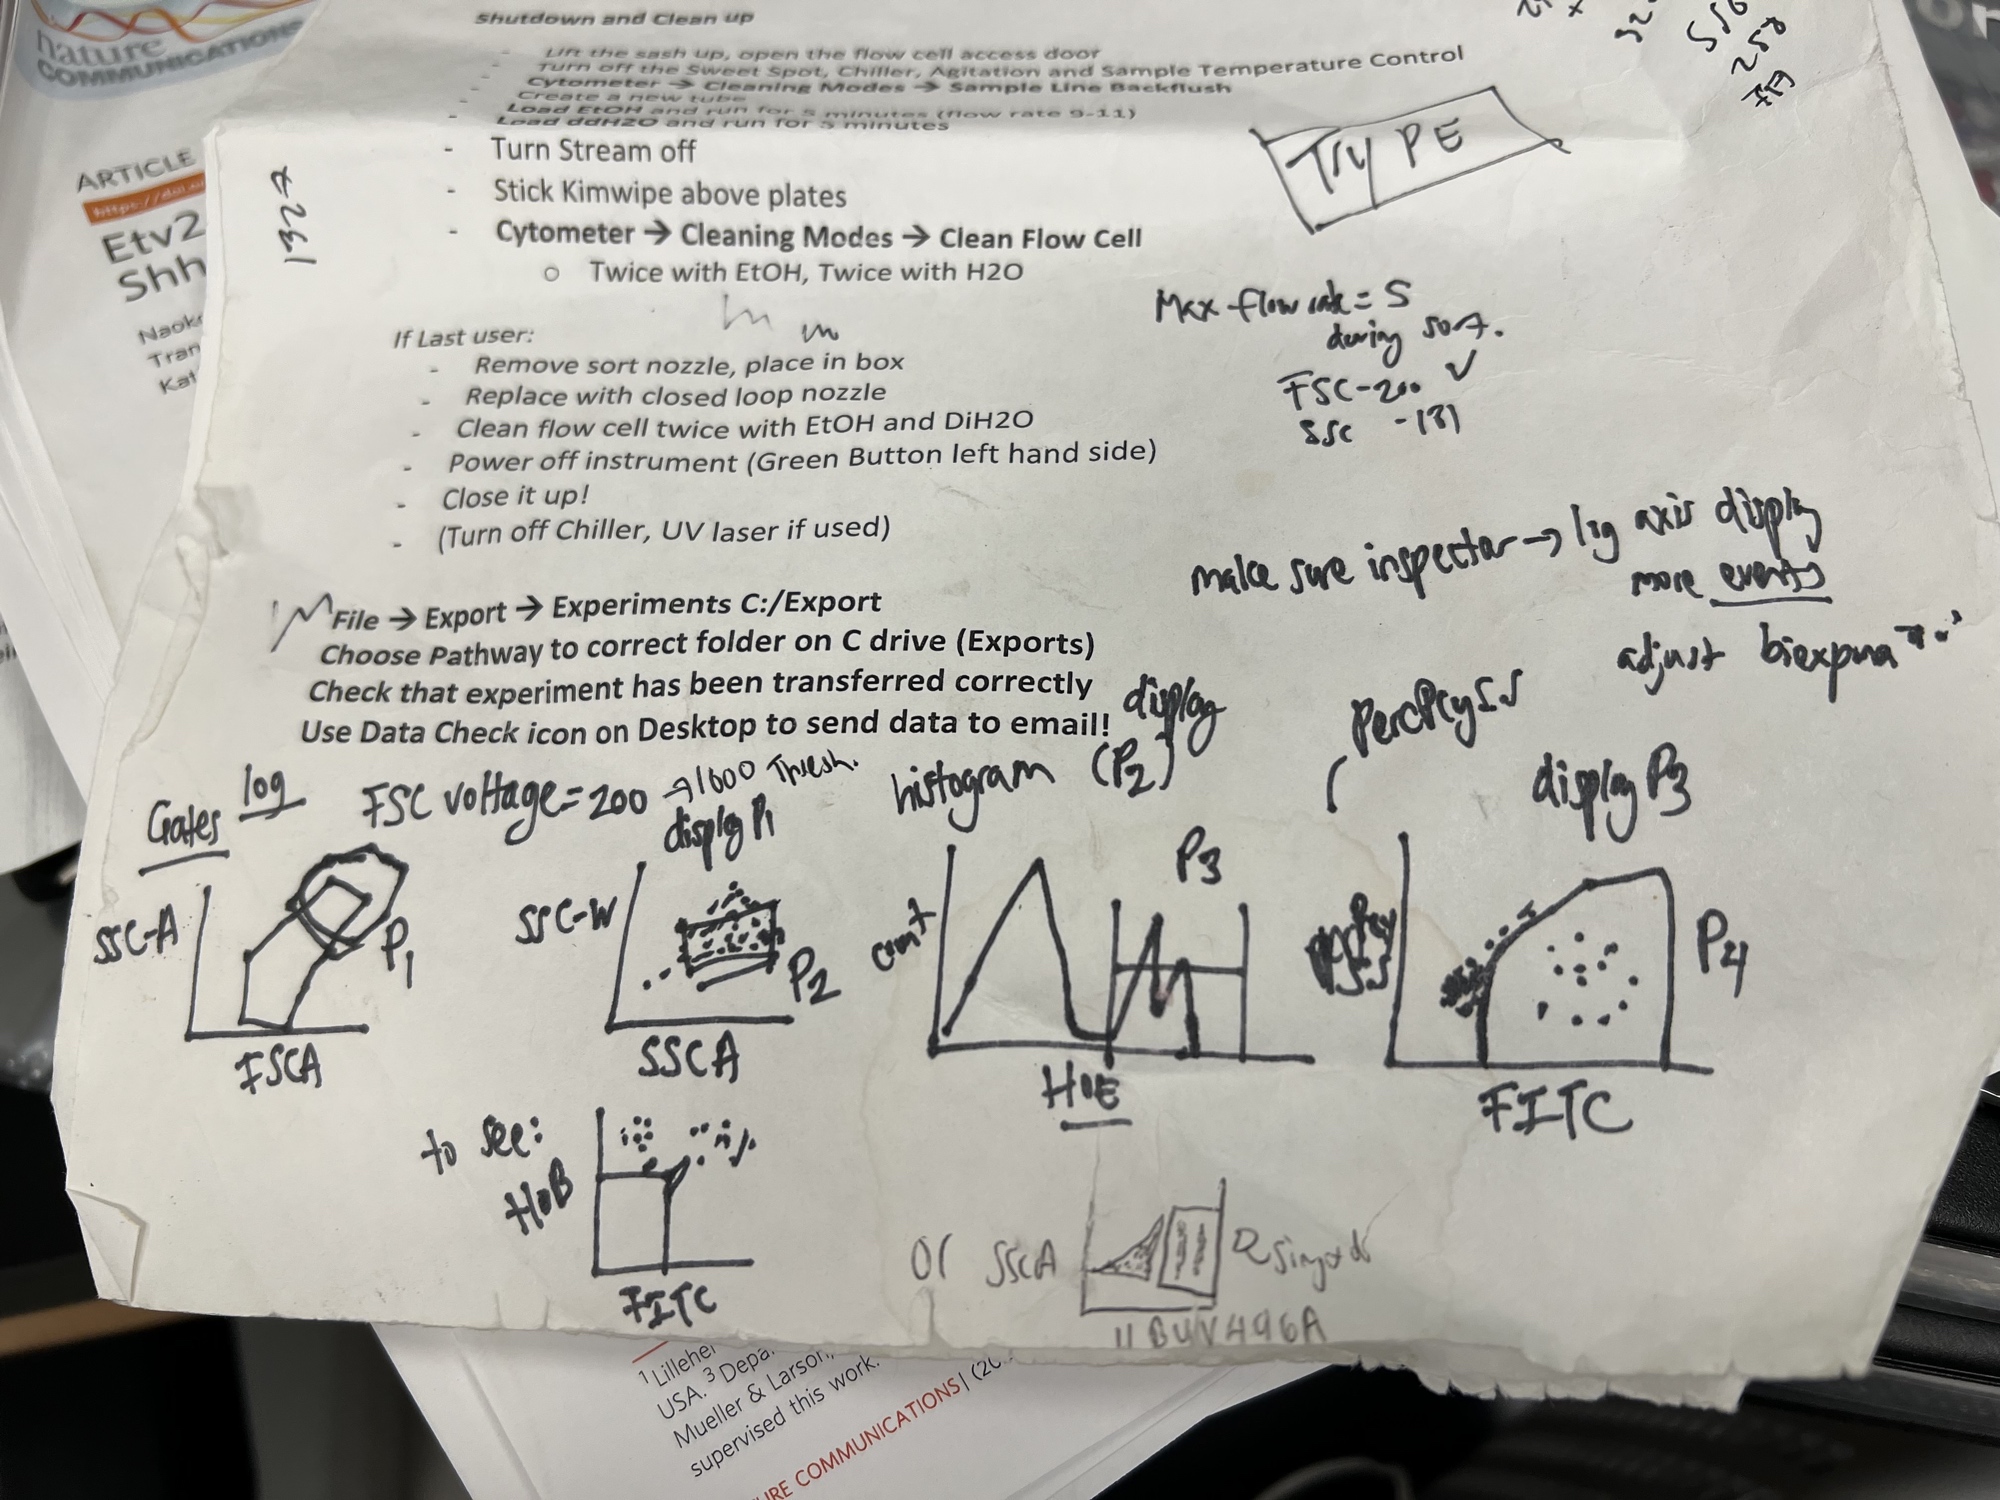 nature
COMMUNICATIONS
ARTICLE
https://doi.
Etv2
Shh
Naok
Tran
Kat
Shutdown and Clean up
- Lift the sash up, open the flow cell access door
- Turn off the Sweet Spot, Chiller, Agitation and Sample Temperature Control
- Cytometer → Cleaning Modes → Sample Line Backflush
- Create a new tube
- Load EtOH and run for 5 minutes (flow rate 9-11)
- Load ddH2O and run for 5 minutes
- Turn Stream off
- Stick Kimwipe above plates
- Cytometer → Cleaning Modes → Clean Flow Cell
o Twice with EtOH, Twice with H2O
If Last user:
- Remove sort nozzle, place in box
- Replace with closed loop nozzle
- Clean flow cell twice with EtOH and DiH2O
- Power off instrument (Green Button left hand side)
- Close it up!
- (Turn off Chiller, UV laser if used)
Max flow rate = 5
during sort.
FSC-200 ✓
SSC -181
make sure inspector → log axis display
more events
adjust
File → Export → Experiments C:/Export
Choose Pathway to correct folder on C drive (Exports)
Check that experiment has been transferred correctly
Use Data Check icon on Desktop to send data to email!
Gates log FSC voltage = 200 → 1000 Thresh.
display P1
histogram (P2) display
PercPCy5.5
display P3
SSC-A
P1
FSCA
SSC-W
P2
SSCA
count
P3
HOE
P4
FITC
to see:
HoB
FITC
or SSCA
BUV496A
1 Lillehei
USA. 3 Depa
Mueller & Larson,
supervised this work.
URE COMMUNICATIONS| (20